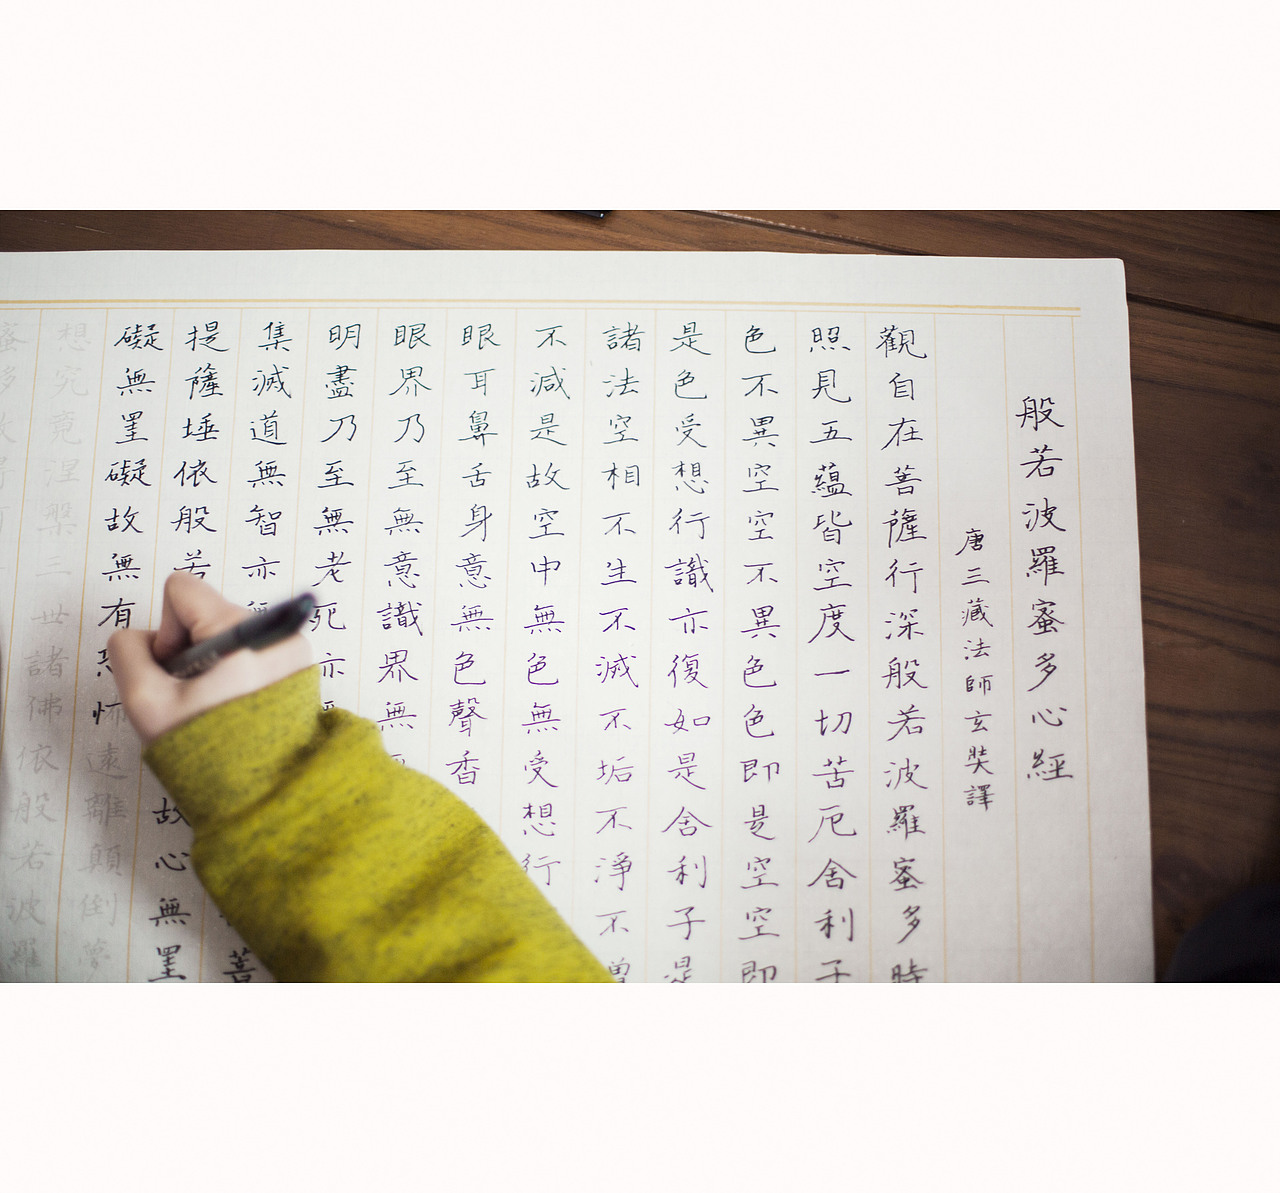 般若波羅蜜多心經
唐三藏法師玄奘譯
觀自在菩薩行深般若波羅蜜多時
照見五蘊皆空度一切苦厄舍利子
色不異空空不異色色即是空空即
是色受想行識亦復如是舍利子是
諸法空相不生不滅不垢不淨不增
不減是故空中無色無受想行
眼耳鼻舌身意無色聲香
眼界乃至無意識界無
明盡乃至無老死亦
集滅道無智亦 菩
提薩埵依般若 故心無罣
礙無罣礙故無有恐怖遠離顛倒夢
想究竟涅槃三世諸佛依般若波羅
蜜多故得